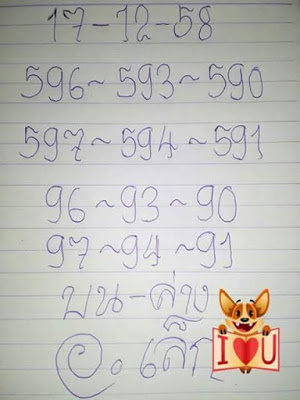 17-12-58
596~593~590
597~594~591
96~93~90
97~94~91
บน-ล่าง
I U